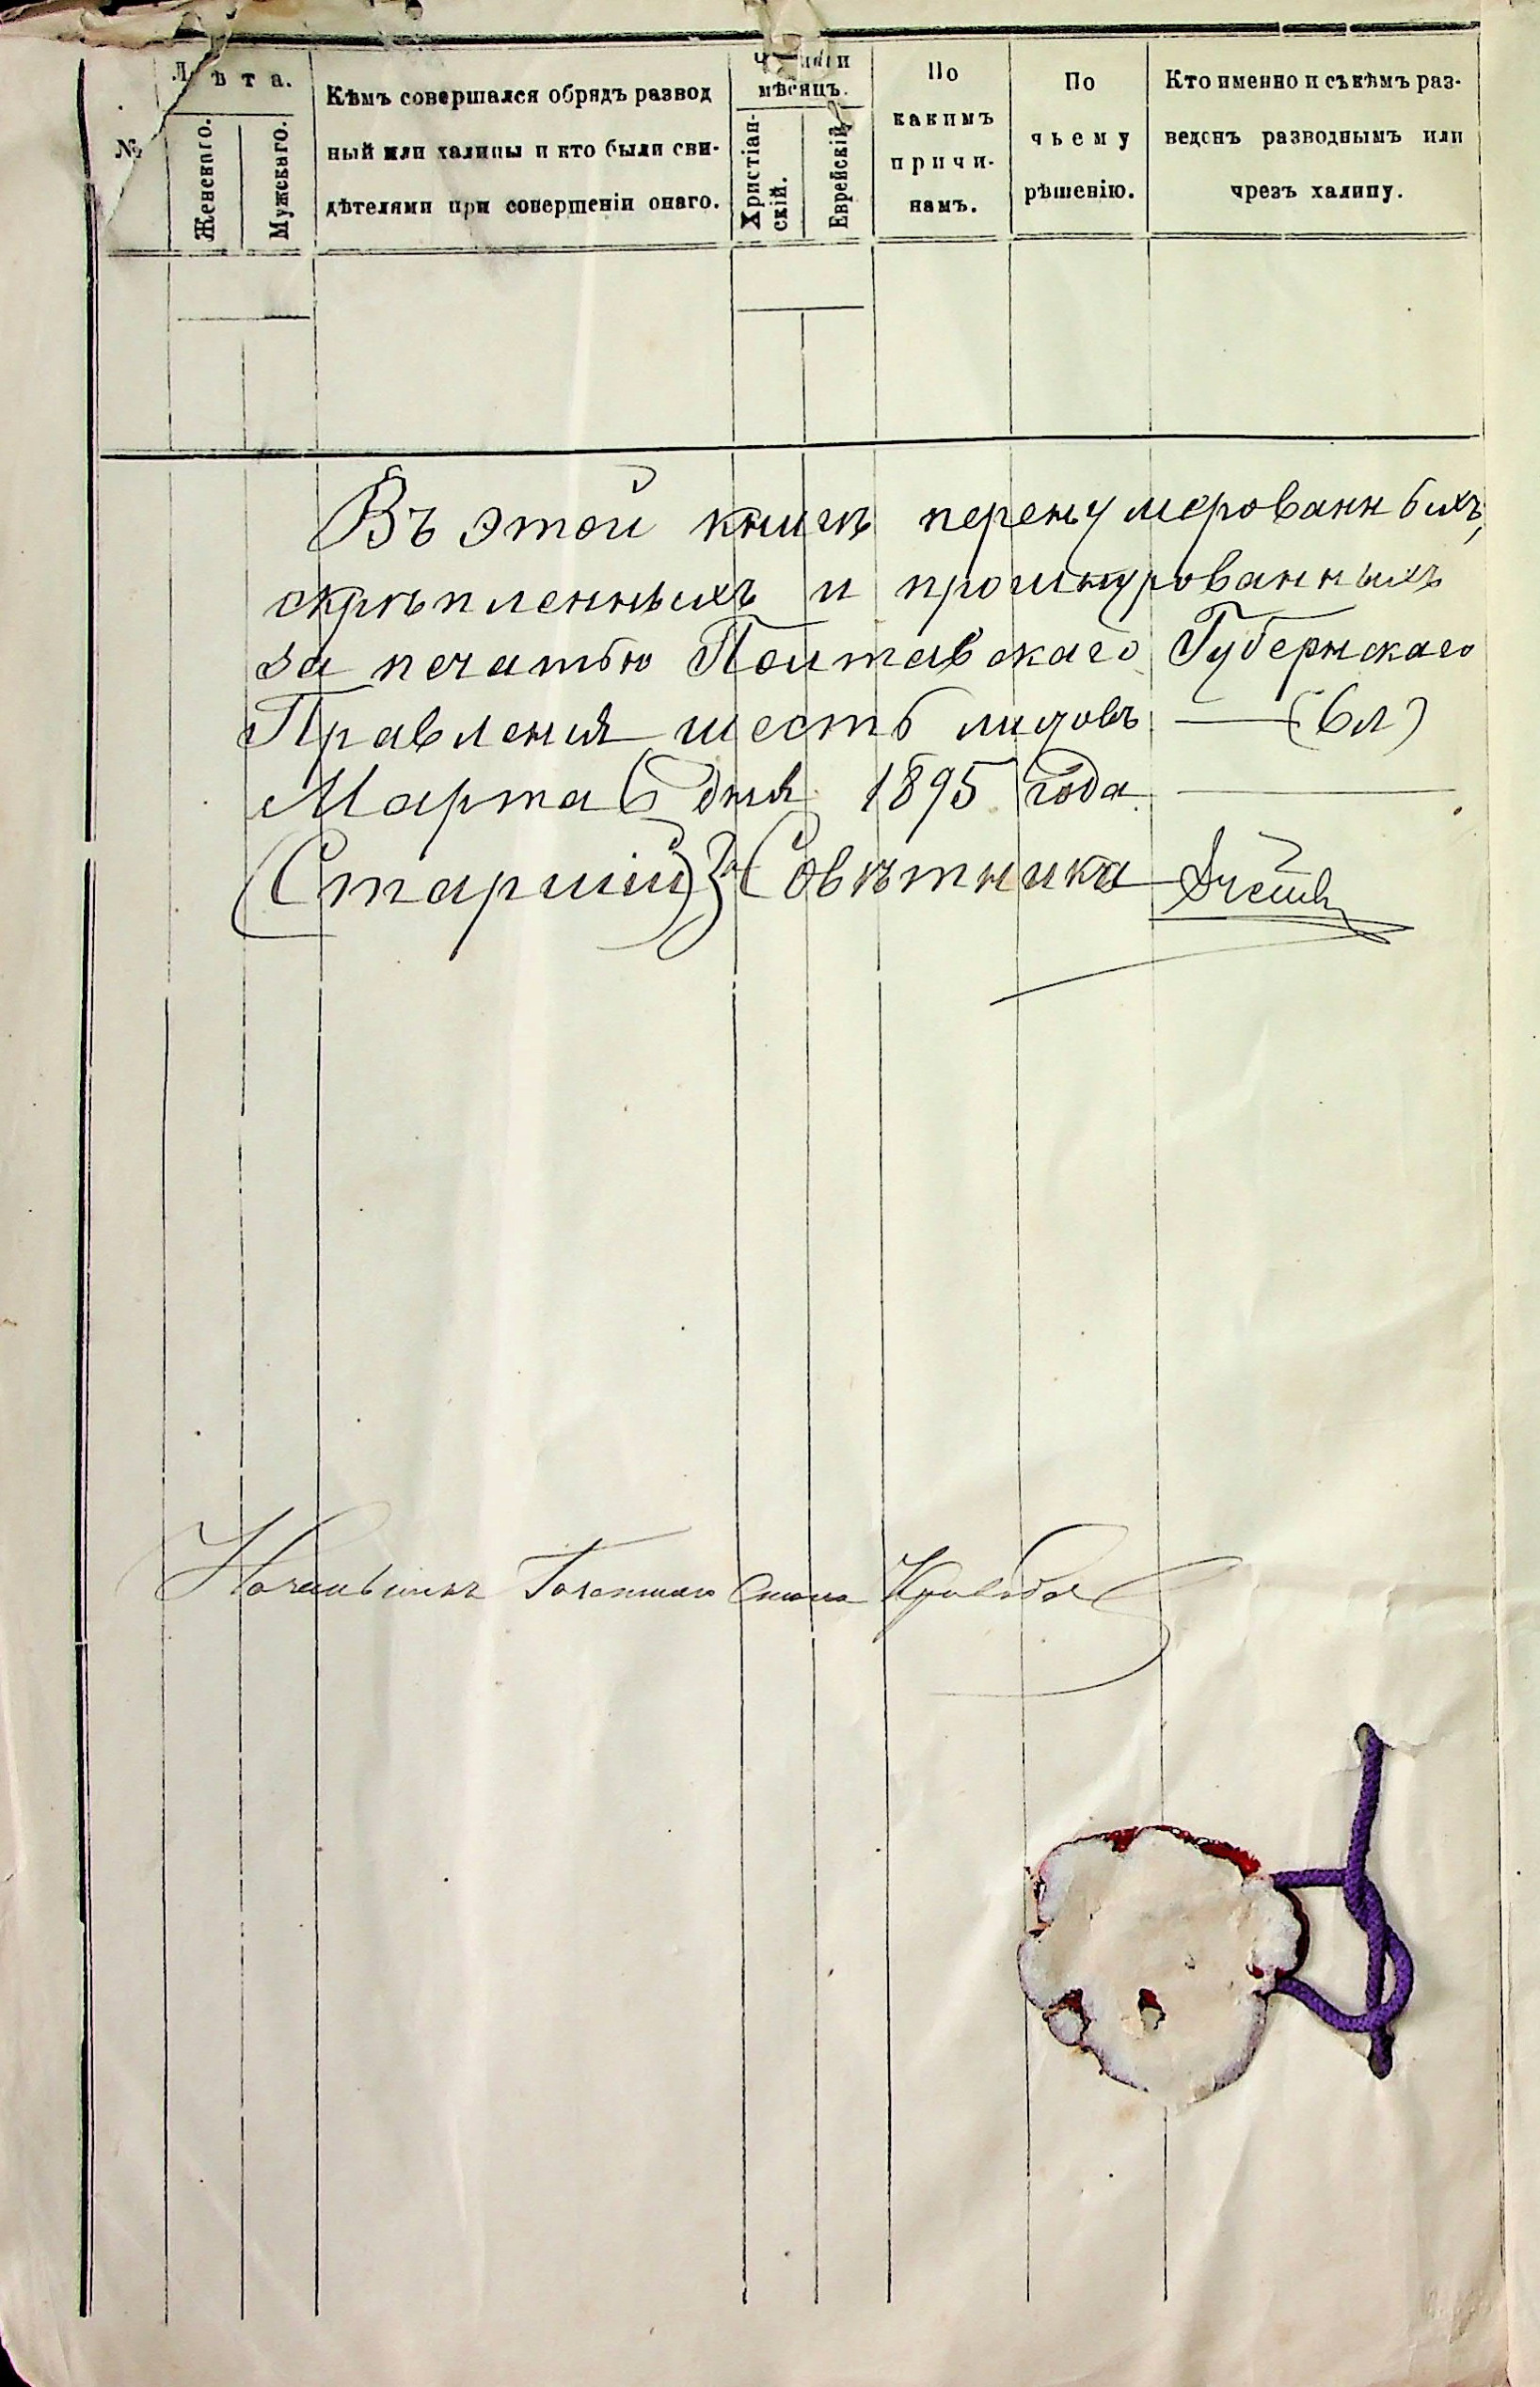 №
Лѣта.
Женскаго.
Мужскаго.
Кѣмъ совершался обрядъ развод
ный или халицы и кто были сви-
дѣтелями при совершеніи онаго.
мѣсяцъ.
Христіан-
скій.
Еврейскій
По
какимъ
причи-
намъ.
По
чьему
рѣшенію.
Кто именно и съ кѣмъ раз-
веденъ разводнымъ или
чрезъ халицу.
Въ этой книгѣ перенумерованныхъ,
скрѣпленныхъ и прошнурованныхъ
за печатью Полтавскаго Губернскаго
Правленія шесть листовъ (6л)
Марта 6 дня 1895 года
(Старшій) За Совѣтника
Столa